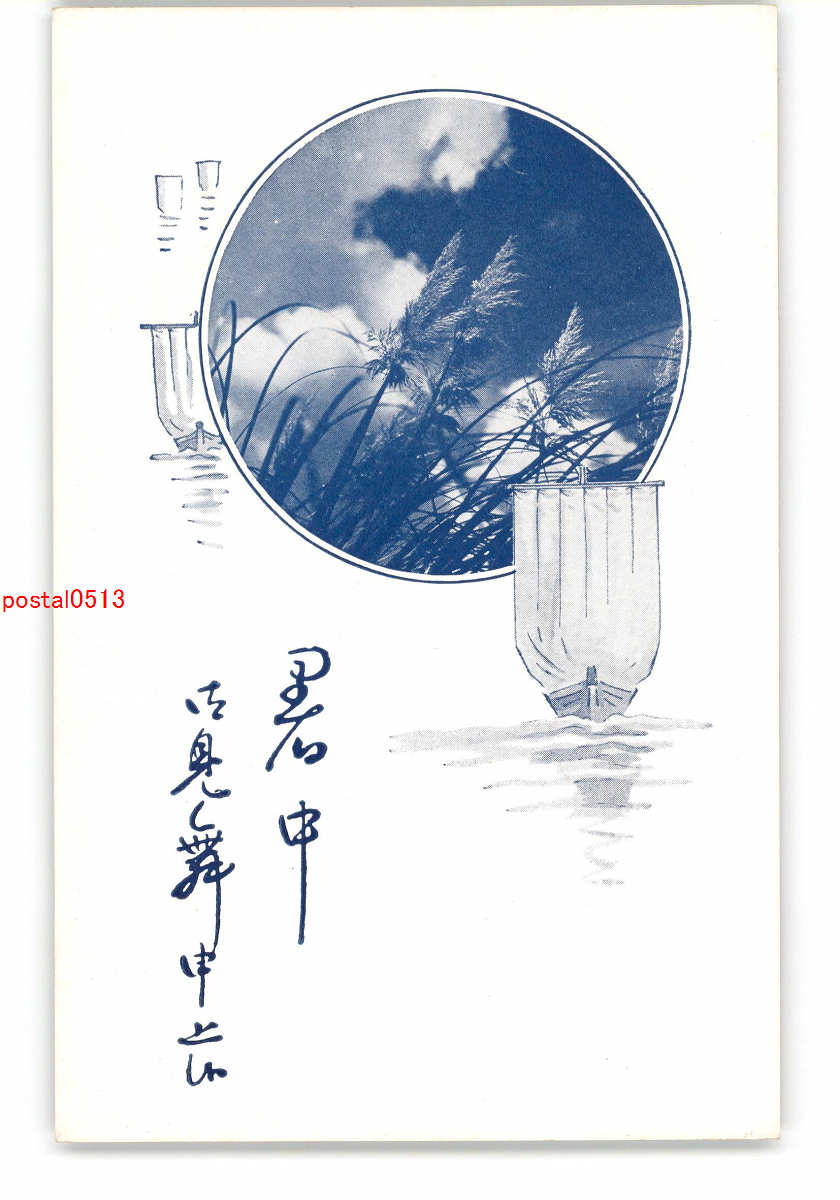 暑中
御見舞申上候
postal0513